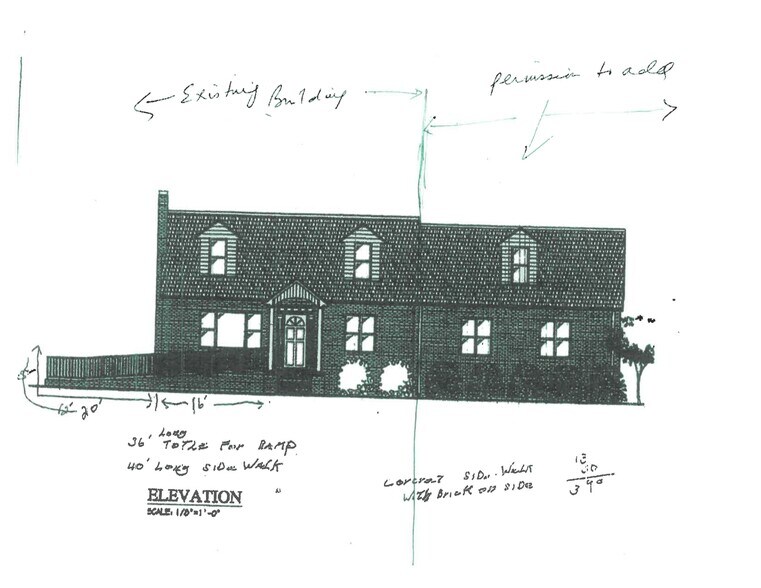 Existing Building
permission to add
20'
16'
36' Long
TOTLE FOR RAMP
40' Long SIDE WALK
ELEVATION
SCALE: 1/8"=1'-0"
SIDE WALK
WITH Brick ON SIDE